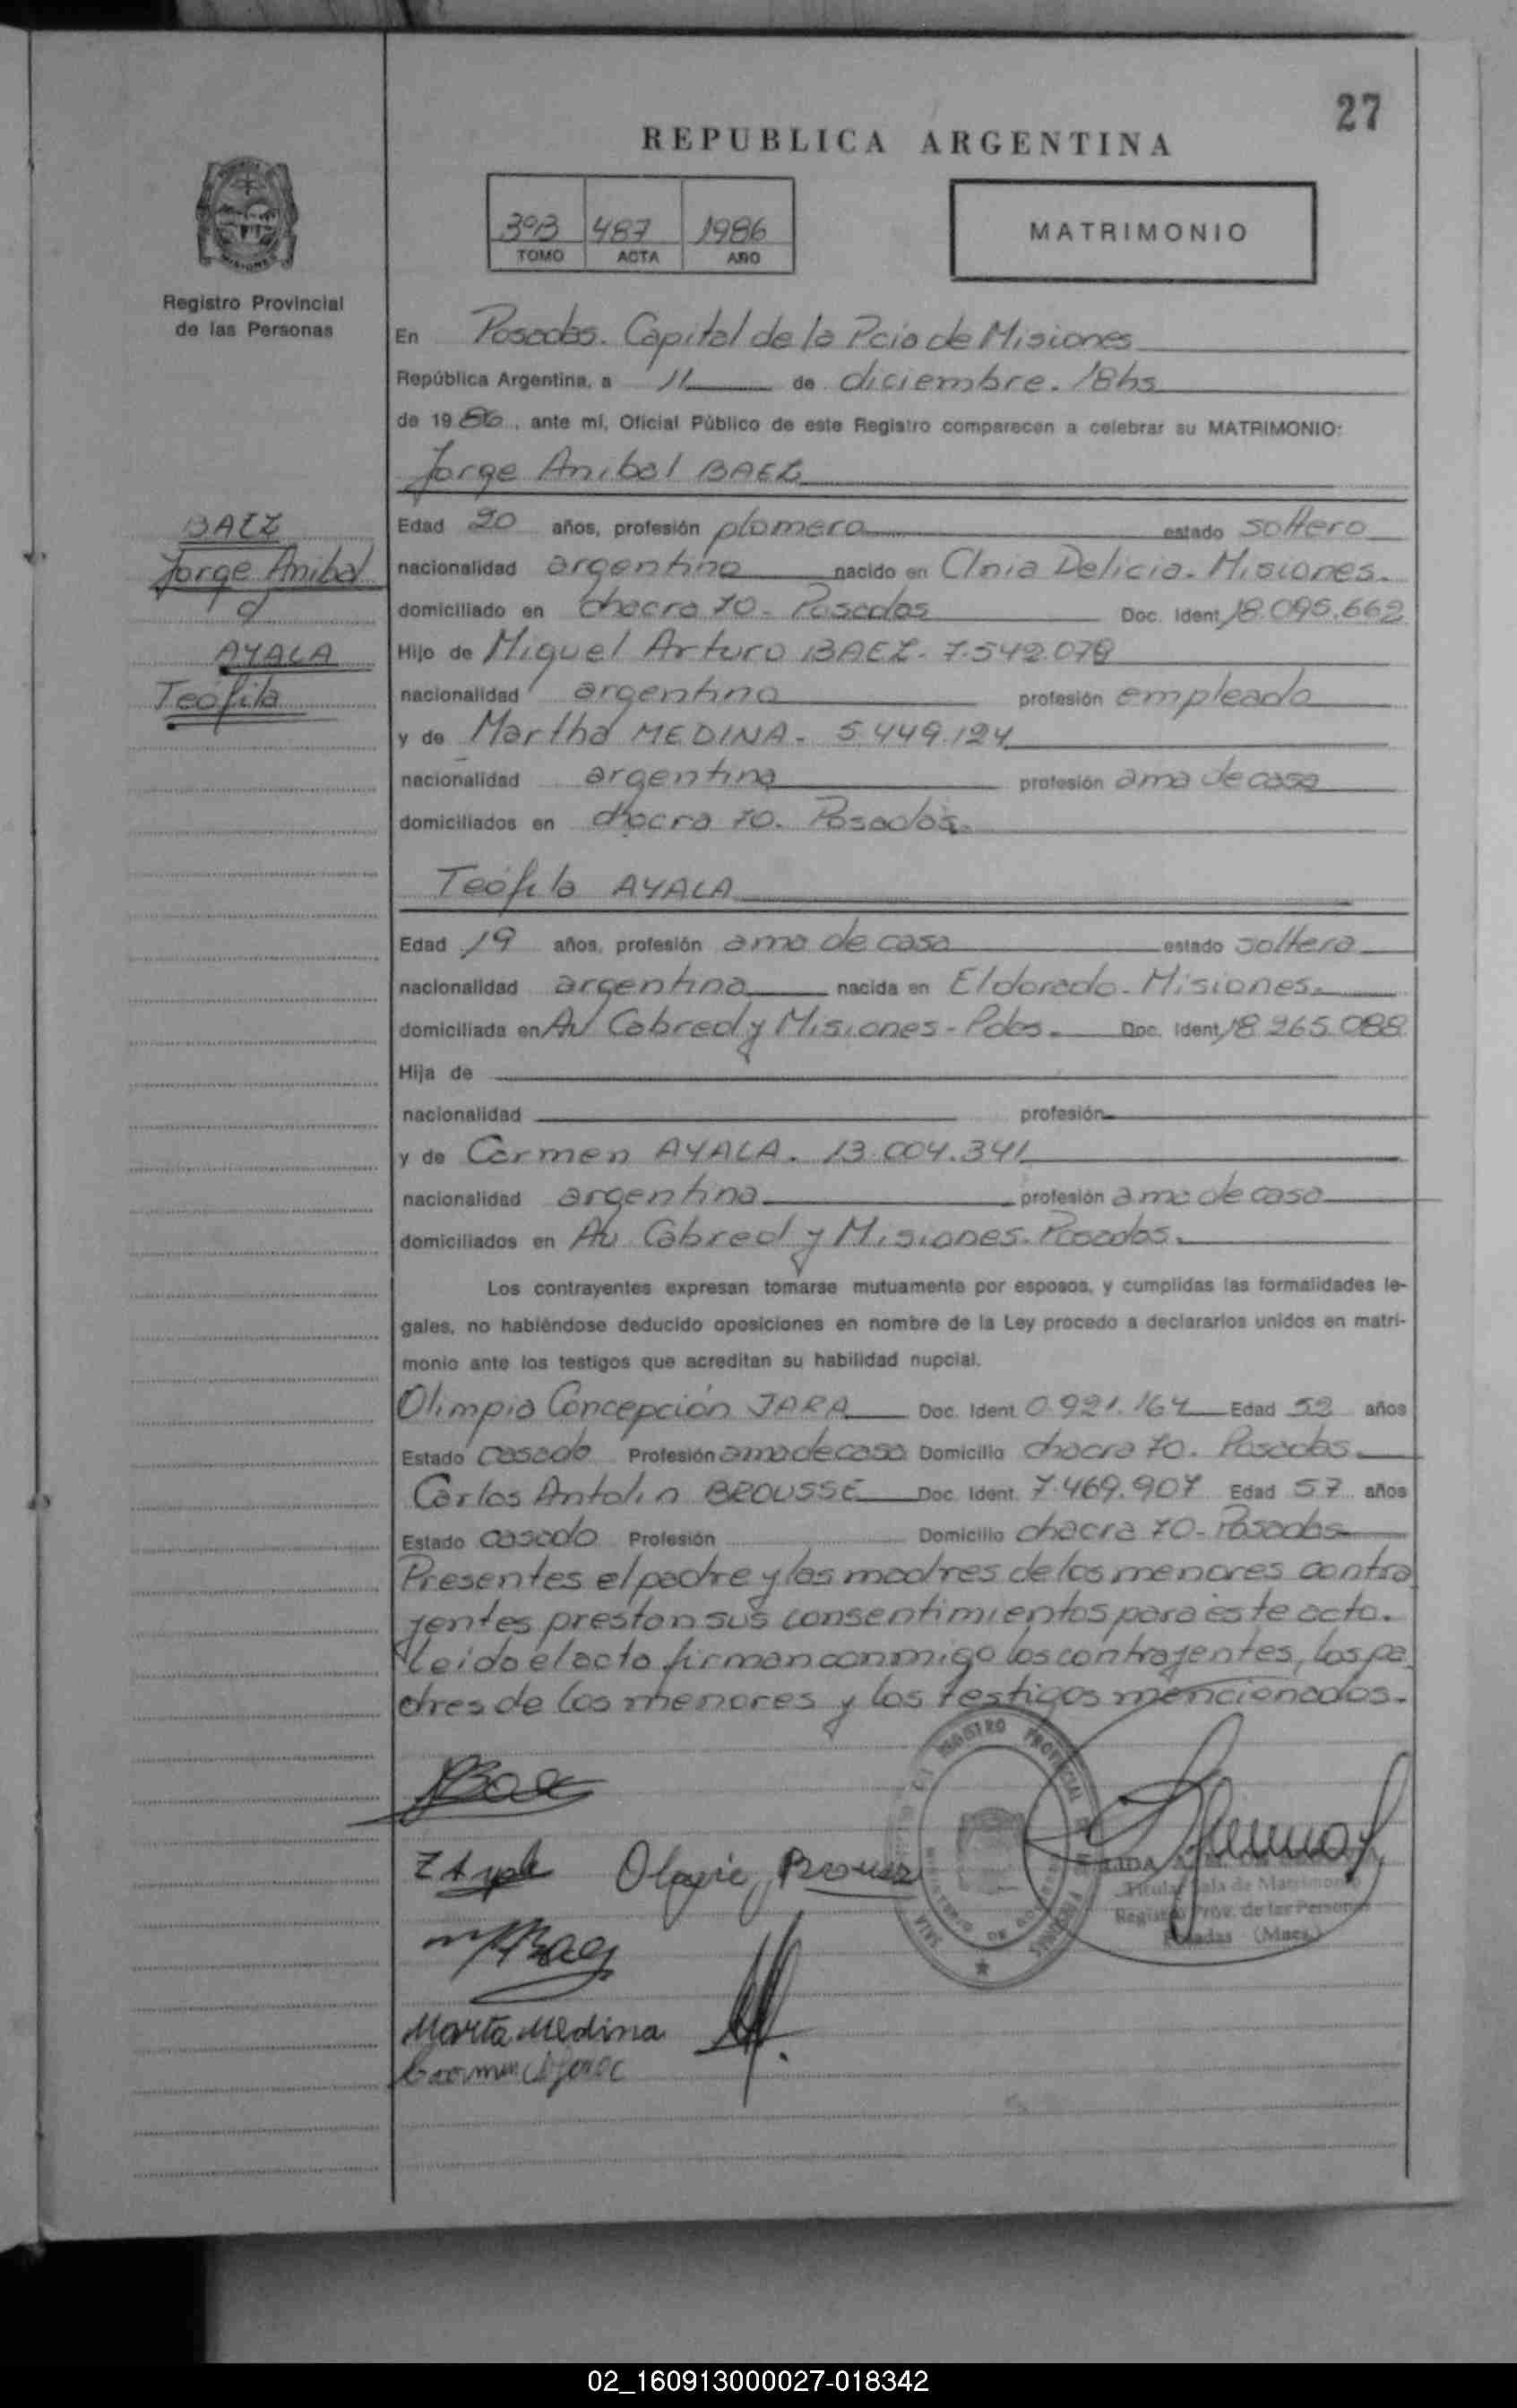 27
REPUBLICA ARGENTINA
3ºB 487 1986
TOMO ACTA AÑO
MATRIMONIO
MISIONES
Registro Provincial
de las Personas
En Posadas. Capital de la Pcia de Misiones
República Argentina, a 11 de diciembre. 18hs
de 1986, ante mí, Oficial Público de este Registro comparecen a celebrar su MATRIMONIO:
Jorge Anibal BAEZ
BAEZ
Jorge Anibal
y
AYALA
Teofila
Edad 20 años, profesión plomero estado soltero
nacionalidad argentino nacido en Clnia Delicia. Misiones.
domiciliado en chacra 70. Posadas Doc. Ident. 18.095.662
Hijo de Miguel Arturo BAEZ. 7.542.078
nacionalidad argentino profesión empleado
y de Martha MEDINA. 5.449.124
nacionalidad argentina profesión ama de casa
domiciliados en chacra 70. Posadas.
Teófila AYALA
Edad 19 años, profesión ama de casa estado soltera
nacionalidad argentina nacida en Eldorado. Misiones.
domiciliada en Av Cabred y Misiones - Pdas. Doc. Ident. 18.265.088
Hija de
nacionalidad profesión
y de Carmen AYALA. 13.004.341
nacionalidad argentina profesión ama de casa
domiciliados en Av Cabred y Misiones. Posadas.
Los contrayentes expresan tomarse mutuamente por esposos, y cumplidas las formalidades le-
gales, no habiéndose deducido oposiciones en nombre de la Ley procedo a declararlos unidos en matri-
monio ante los testigos que acreditan su habilidad nupcial.
Olimpia Concepción JARA Doc. Ident. 0.921.164 Edad 52 años
Estado casada Profesión ama de casa Domicilio chacra 70. Posadas.
Carlos Antolin BROUSSE Doc. Ident. 7.469.907 Edad 57 años
Estado casado Profesión Domicilio chacra 70. Posadas
Presentes el padre y las madres de los menores contra
yentes prestan sus consentimientos para este acto.
Leido el acto firman conmigo los contrayentes, los pa
dres de los menores y los testigos mencionados.
REGISTRO PROVINCIAL DE PERSONAS
Titular Sala de Matrimonio
Registro Prov. de las Personas
Posadas (Mnes.)
Marta Medina
Carmen Ayala
02_160913000027-018342